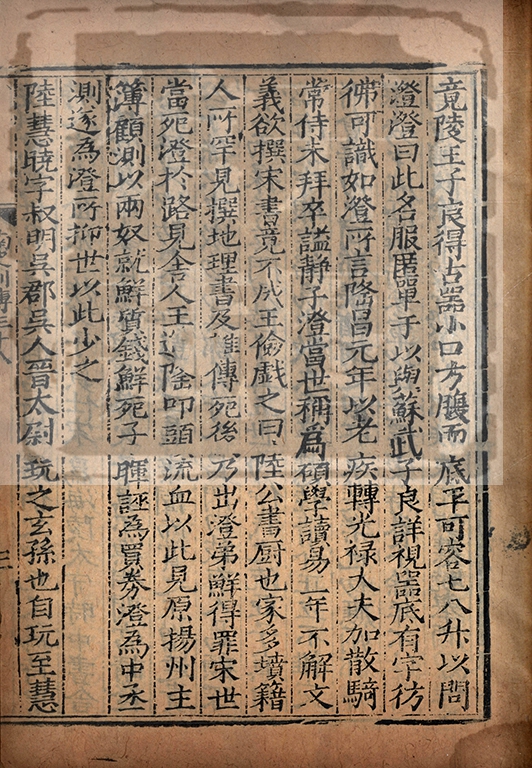 竟陵王子良得古器小口方腹而底平可容七八升以問
澄澄曰此名服匿單于以與蘇武子良詳視器底有字彷
彿可識如澄所言隆昌元年以老疾轉光祿大夫加散騎
常侍未拜卒謚靜子澄當世稱爲碩學讀易三年不解文
義欲撰宋書竟不成王儉戲之曰陸公書厨也家多墳籍
人所罕見撰地理書及雜傳死後乃出澄弟鮮得罪宋世
當死澄於路見舍人王道隆叩頭流血以此見原揚州主
簿顧測以兩奴就鮮質錢鮮死子暉誣爲買券澄爲中丞
測遂爲澄所抑世以此少之
陸慧曉字叔明吳郡吳人晉太尉玩之玄孫也自玩至慧